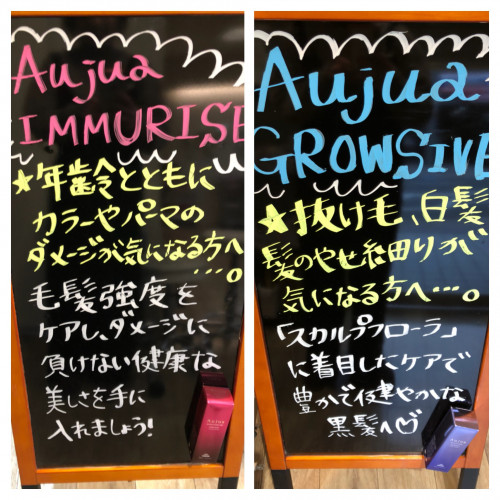 Aujua
IMMURISE
★年齢とともに
カラーやパーマの
ダメージが気になる方へ
…。
毛髪強度を
ケアし、ダメージに
負けない健康な
美しさを手に
入れましょう!
Aujua
GROWSIVE
★抜け毛、白髪
髪のやせ細りが
気になる方へ…。
「スカルプフローラ」
に着目したケアで
豊かで健やかな
黒髪へ♡